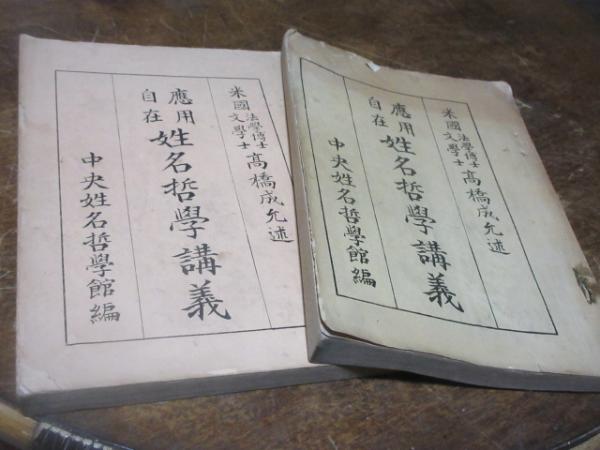 米國法學博士文學士高橋成允述
應用自在姓名哲學講義
中央姓名哲學館編
米國法學博士文學士高橋成允述
應用自在姓名哲學講義
中央姓名哲學館編